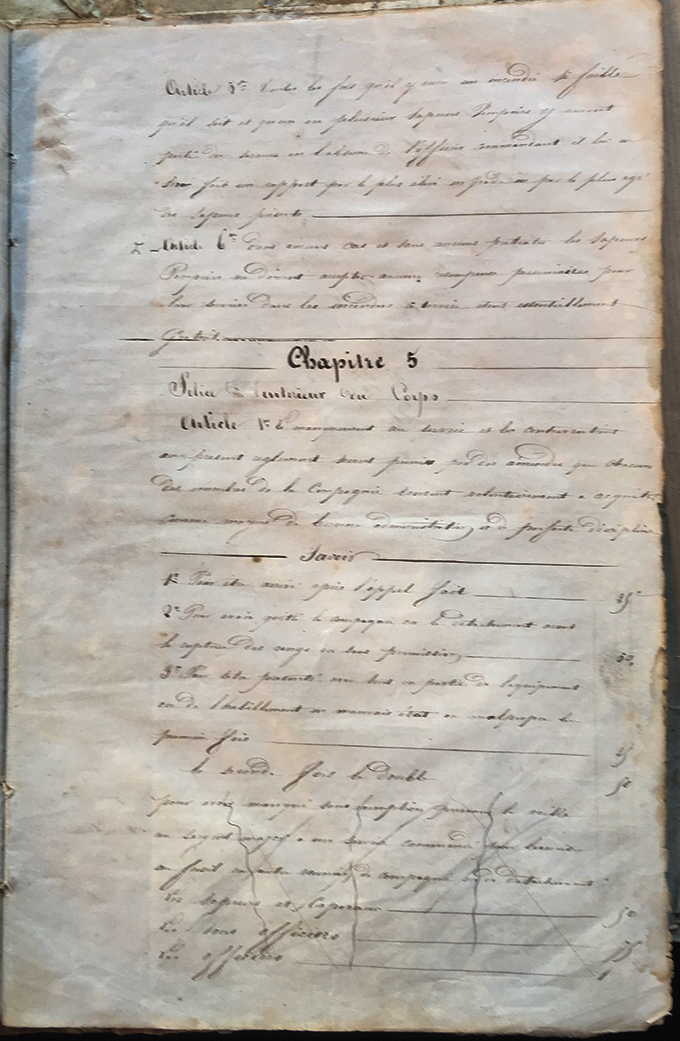 Article 5e Toutes les fois qu'il y aura un incendie si faible
qu'il soit et qu'un ou plusieurs Sapeurs Pompiers y auront
porté du secours en l'absence de l'officier commandant il lui en
sera fait un rapport par le plus élevé en grade ou par le plus agé
des Sapeurs présents
Article 6e dans aucun cas et sous aucuns prétextes les Sapeurs
Pompiers ne doivent accepter aucune récompense pécuniaires pour
leur service dans les incendies ce service étant essentiellement
Gratuit
Chapitre 5
Police intérieur du Corps
Article 1er Le manquement au service et les contraventions
au présent reglement seront punies par des amendes que chacun
des membres de la Compagnie seront volontairement a acquitter
comme moyen de bonne administration et de parfaite discipline
Savoir
1e Pour etre arrivé après l'appel fait 25
2e Pour avoir quitté la compagnie ou le détachement avant
la rupture des rangs ou sans permission 50
3e Pour s'etre présenté avec tout ou partie de l'equipement
ou de l'habillement en mauvais état ou malpropre la
premiere fois 25
la seconde fois le double 50
pour avoir manqué sans la veille
au Sergent major a un service commandé
au fusil ou autre de compagnie ou de détachement
Les Sapeurs et Caporaux 50
Les sous officiers 75
Les officiers 1